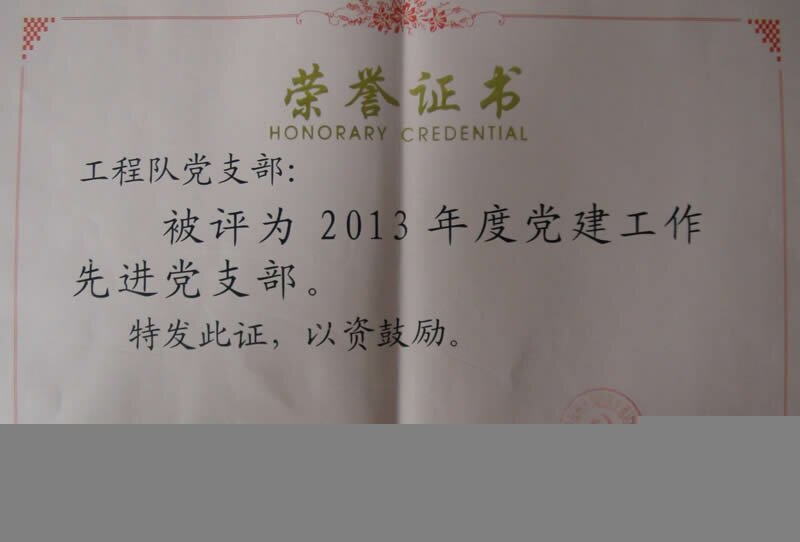 荣誉证书
HONORARY CREDENTIAL
工程队党支部:
被评为 2013 年度党建工作
先进党支部。
特发此证，以资鼓励。